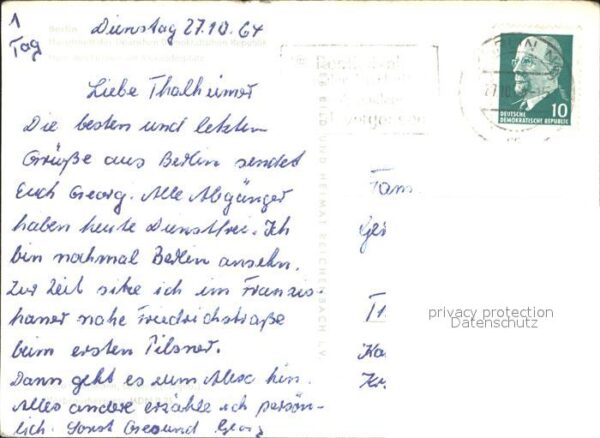 1
Tag
Dienstag 27.10.64
Berlin
Liebe Thalheimer
Die besten und letzten
Grüße aus Berlin sendet
Euch Georg. Alle Abgänger
haben heute Dienstfrei. Ich
bin nochmal Berlin ansehn.
Zur Zeit sitze ich im Franzis-
kaner nahe Friedrichstraße
beim ersten Pilsner.
Dann geht es zum Alex hin.
Alles andere erzähle ich persön-
lich. Sonst Gesund Georg
10
DEUTSCHE
DEMOKRATISCHE REPUBLIK
BILD UND HEIMAT REICHENBACH I. V.
Fam
privacy protection
Datenschutz